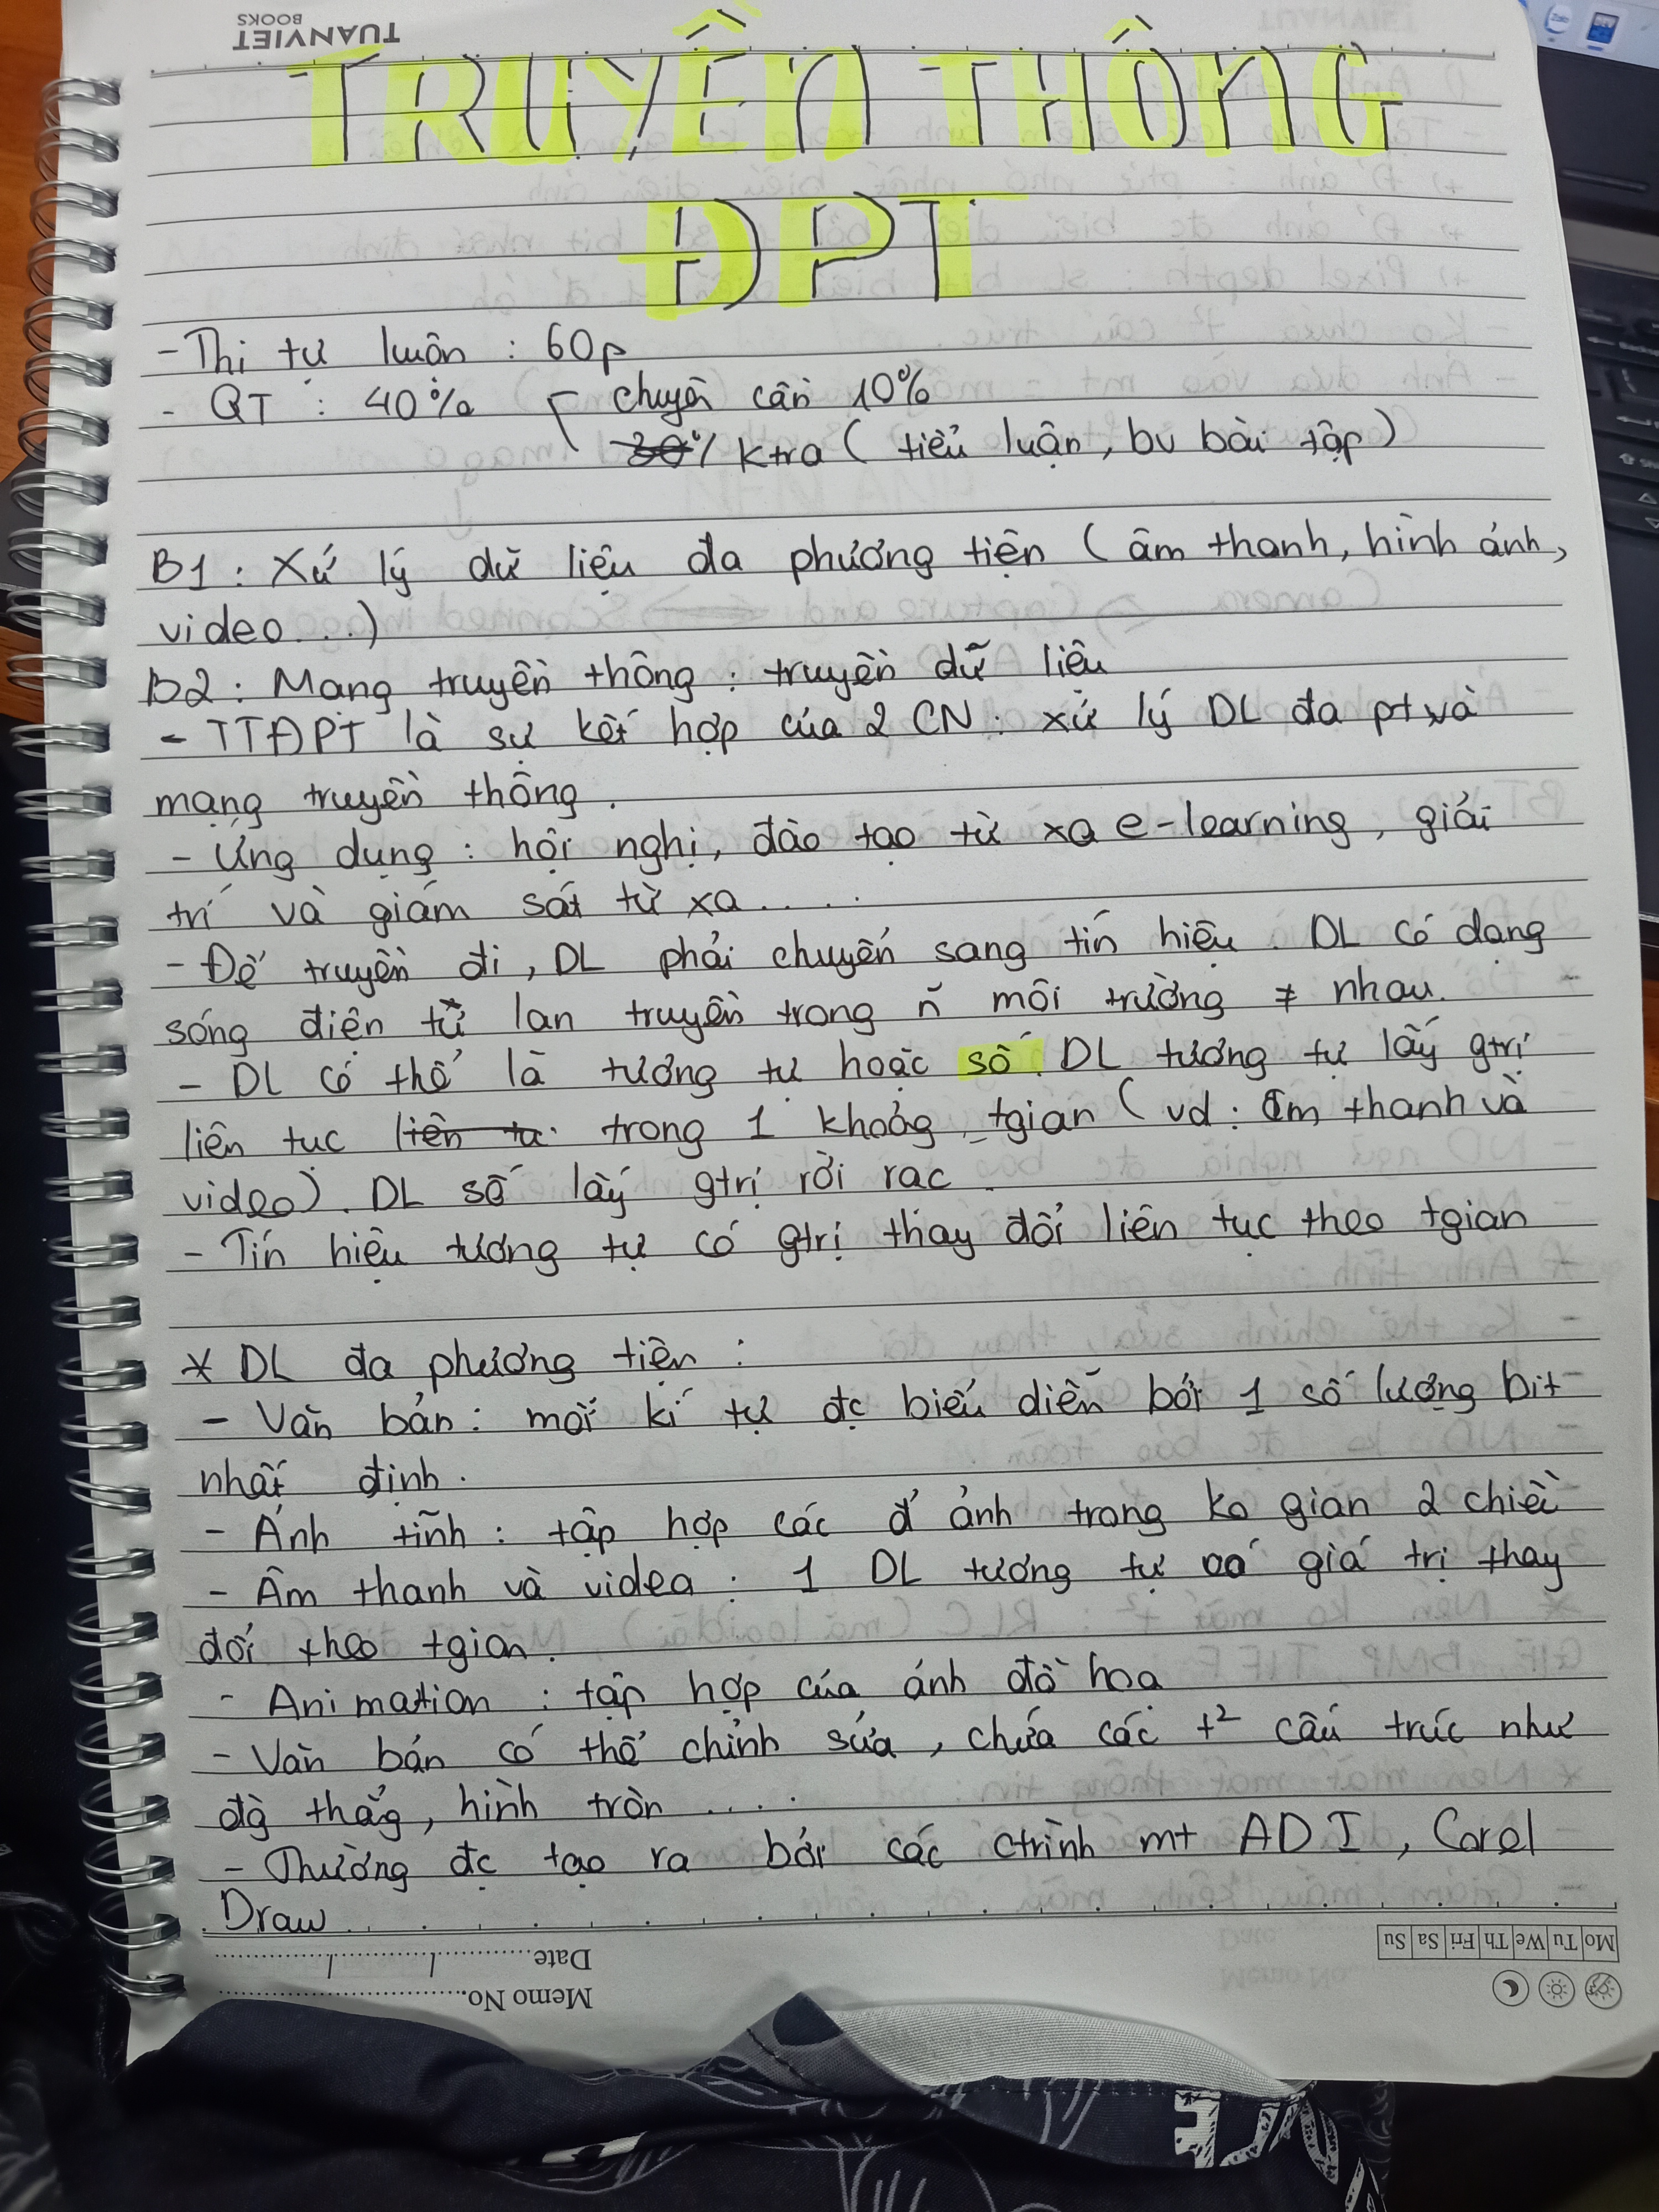 TUANVIET
BOOKS
TRUYỀN THÔNG
ĐPT
- Thi tự luân : 60p
- QT : 40% chuyên cần 10%
30% ktra ( tiểu luận, bv bài tập )
B1 : Xử lý dữ liệu đa phương tiện ( âm thanh, hình ảnh,
video...)
B2 : Mạng truyền thông : truyền dữ liệu
- TTĐPT là sự kết hợp của 2 CN : xử lý DL đa pt và
mạng truyền thông.
- Ứng dụng : hội nghị, đào tạo từ xa e-learning, giải
trí và giám sát từ xa.....
- Để truyền đi, DL phải chuyển sang tín hiệu. DL có dạng
sóng điện từ lan truyền trong n~ môi trường ≠ nhau.
- DL có thể là tương tự hoặc số. DL tương tự lấy gtrị
liên tục liên tu trong 1 khoảng tgian ( vd : âm thanh và
video). DL số lấy gtrị rời rạc
- Tín hiệu tương tự có gtrị thay đổi liên tục theo tgian
* DL đa phương tiện :
- Văn bản : mỗi kí tự đc biểu diễn bởi 1 số lượng bit
nhất định.
- Ảnh tĩnh : tập hợp các đ' ảnh trong ko gian 2 chiều
- Âm thanh và video : 1 DL tương tự có giá trị thay
đổi theo tgian.
- Animation : tập hợp của ảnh đồ hoạ
- Văn bản có thể chỉnh sửa, chứa các t² cấu trúc như
đg` thẳng, hình tròn ....
- Thường đc tạo ra bởi các ctrình mt ADI, Corel
Draw
Mo Tu We Th Fri Sa Su
Date / /
Memo No.